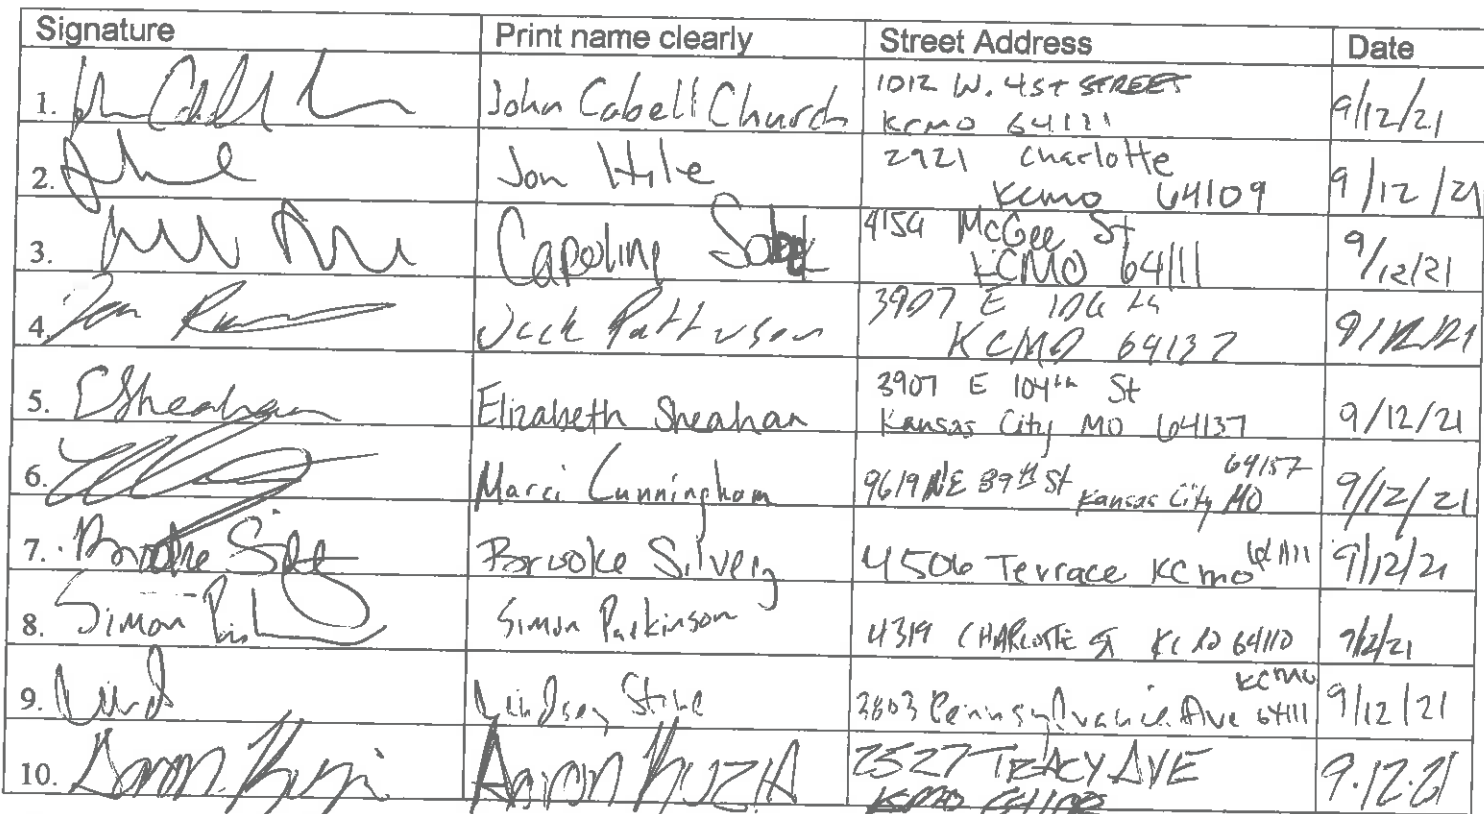 Signature Print name clearly Street Address Date
1. John Cabell Church 1012 W. 41ST STREET
KCMO 64111 9/12/21
2. Jon Hile 2921 Charlotte
KCMO 64109 9/12/21
3. Caroline 4154 McGee St
KCMO 64111 9/12/21
4. Jack Patterson 3907 E
KCMO 64137 9/12/21
5. ESheahan Elizabeth Sheahan 3907 E 104th St
Kansas City MO 64137 9/12/21
6. Marci Cunningham 9619 NE 39th St Kansas City MO 64157 9/12/21
7. Brooke Brooke Silverg 4506 Terrace KCMO 64111 9/12/21
8. Simon Simon Parkinson 4319 CHARLOTTE ST KCMO 64110 9/12/21
9. Lindsey Stine 3803 Pennsylvania Ave KCMO 64111 9/12/21
10. Aaron Aaron 2527 TRACY AVE
KCMO 9.12.21